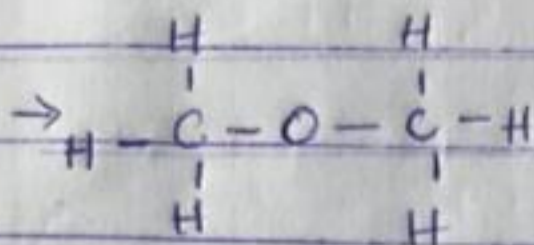 H H
| |
→ H - C - O - C - H
| |
H H